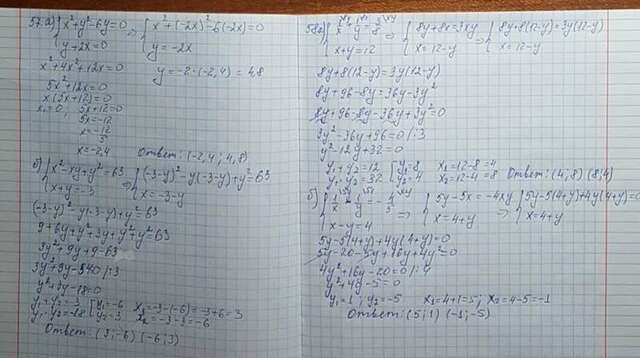 57 а) { x² + y² - 6y = 0 ⇒ { x² + (-2x)² - 6(-2x) = 0
y - 2x = 0 y = -2x
x² + 4x² + 12x = 0 y = -2·(-2,4) = 4,8
5x² + 12x = 0
x(5x + 12) = 0
x₁ = 0, 5x + 12 = 0
5x = -12
x = -12/5
x = -2,4 Ответ: (-2,4; 4,8)
б) { x² - xy + y² = 63 ⇒ { (-3-y)² - y(-3-y) + y² = 63
x + y = -3 x = -3 - y
(-3-y)² - y(-3-y) + y² = 63
9 + 6y + y² + 3y + y² + y² = 63
3y² + 9y + 9 - 63
3y² + 9y - 54 = 0 /:3
y² + 3y - 18 = 0
y₁ + y₂ = -3 [ y₁ = -6 x₁ = -3 - (-6) = -3 + 6 = 3
y₁ · y₂ = -18 [ y₂ = 3 x₂ = -3 - 3 = -6
Ответ: (3; -6) (-6; 3)
x + y = 12 ⇒ { 8y + 8x = 3xy ⇒ { 8y + 8(12-y) = 3y(12-y)
x = 12 - y x = 12 - y
8y + 8(12-y) = 3y(12-y)
8y + 96 - 8y = 36y - 3y²
8y + 96 - 8y - 36y + 3y² = 0
3y² - 36y + 96 = 0 /:3
y² - 12y + 32 = 0
y₁ + y₂ = 12 [ y₁ = 8 x₁ = 12 - 8 = 4
y₁ · y₂ = 32 [ y₂ = 4 x₂ = 12 - 4 = 8 Ответ: (4; 8) (8; 4)
б) { 1/x - 1/y = -4/5 ⇒ { 5y - 5x = -4xy ⇒ { 5y - 5(4+y) + 4y(4+y) = 0
x - y = 4 x = 4 + y x = 4 + y
5y - 5(4+y) + 4y(4+y) = 0
5y - 20 - 5y + 16y + 4y² = 0
4y² + 16y - 20 = 0 /:4
y² + 4y - 5 = 0
y₁ = 1; y₂ = -5 x₁ = 4 + 1 = 5; x₂ = 4 - 5 = -1
Ответ: (5; 1) (-1; -5)